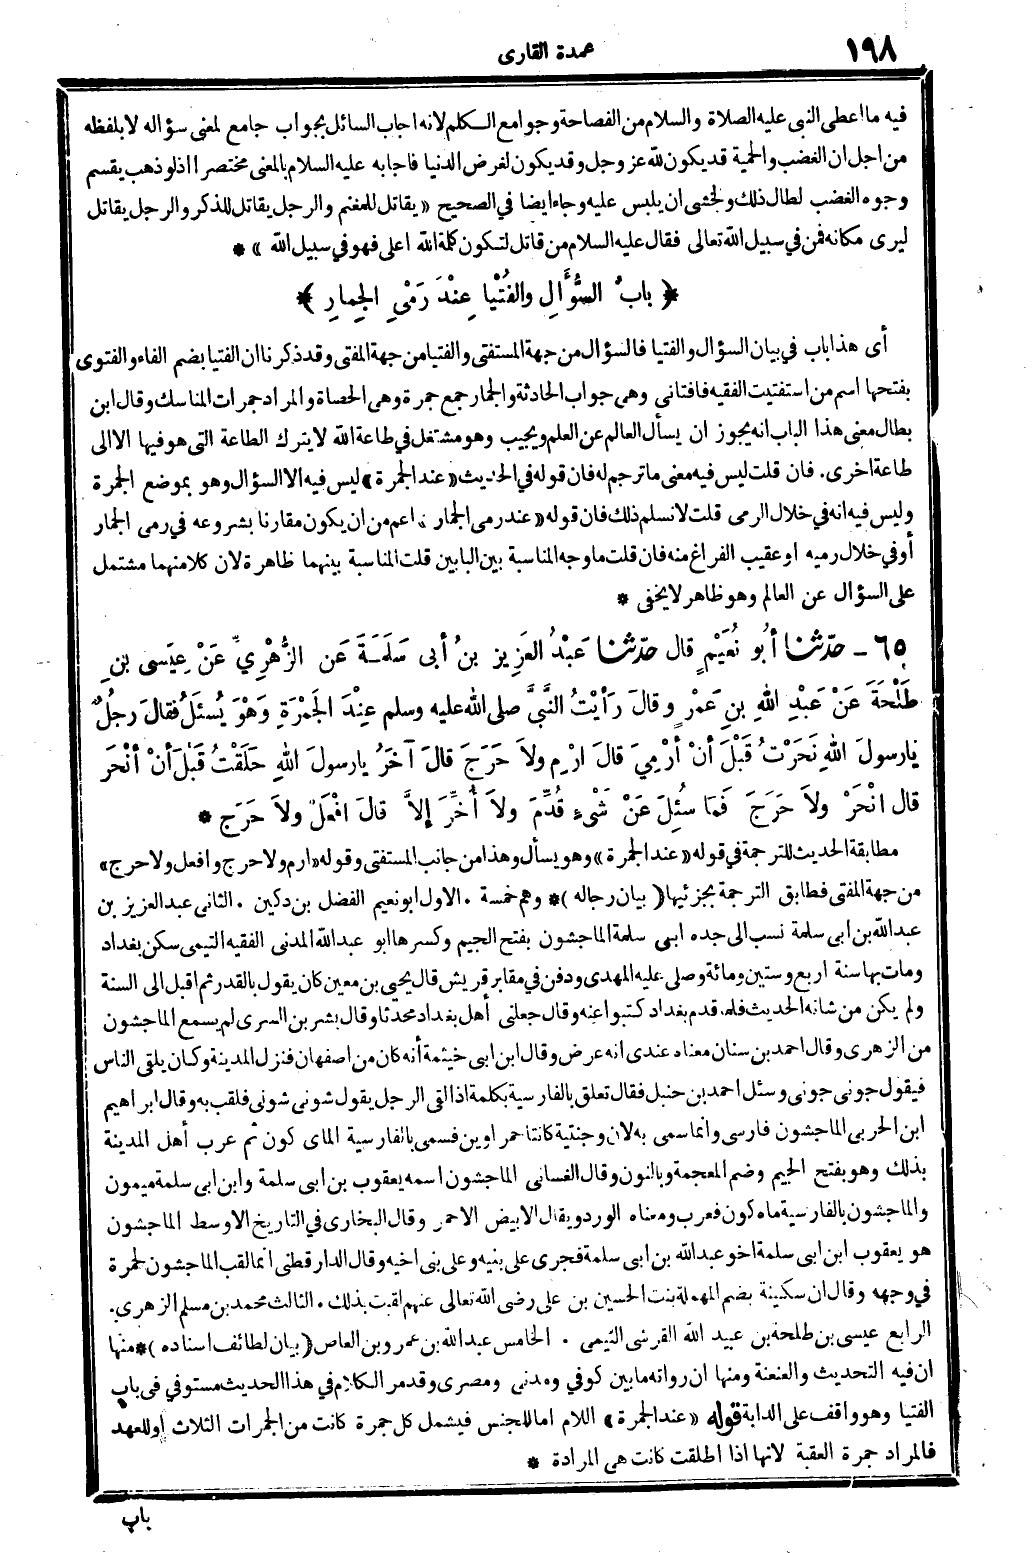 ١٩٨
عمدة القارى
فيه ما اعطى النبى عليه الصلاة والسلام من الفصاحة وجوامع الكلم لانه اجاب السائل بجواب جامع لمعنى سؤاله لا بلفظه
من اجل ان الغضب والحمية قد يكون لله عز وجل وقد يكون لغرض الدنيا فاجابه عليه السلام بالمعنى مختصرا اذ لو ذهب يقسم
وجوه الغضب لطال ذلك ولخشى ان يلبس عليه وجاء ايضا فى الصحيح «يقاتل للمغنم والرجل يقاتل للذكر والرجل يقاتل
ليرى مكانه فمن فى سبيل الله تعالى فقال عليه السلام من قاتل لتكون كلمة الله اعلى فهو فى سبيل الله» *
﴿ بابُ السُّؤَالِ والفُتْيا عِنْدَ رَمْىِ الجِمارِ ﴾
أى هذا باب فى بيان السؤال والفتيا فالسؤال من جهة المستفتى والفتيا من جهة المفتى وقد ذكرنا ان الفتيا بضم الفاء والفتوى
بفتحها اسم من استفتيت الفقيه فافتانى وهى جواب الحادثة والجمار جمع جمرة وهى الحصاة والمراد جمرات المناسك وقال ابن
بطال معنى هذا الباب انه يجوز ان يسأل العالم عن العلم ويجيب وهو مشتغل فى طاعة الله لا يترك الطاعة التى هو فيها الا الى
طاعة اخرى. فان قلت ليس فيه معنى ما ترجم له فان قوله فى الحديث «عند الجمرة» ليس فيه الا السؤال وهو بموضع الجمرة
وليس فيه انه فى خلال الرمى قلت لا نسلم ذلك فان قوله «عند رمى الجمار» اعم من ان يكون مقارنا بشروعه فى رمى الجمار
أو فى خلال رميه او عقيب الفراغ منه فان قلت ما وجه المناسبة بين البابين قلت المناسبة بينهما ظاهرة لان كلا منهما مشتمل
على السؤال عن العالم وهو ظاهر لا يخفى *
٦٥ - حدّثنا أبُو نُعَيْمٍ قال حدّثنا عَبْدُ العَزِيزِ بنُ أبى سَلَمَةَ عَنِ الزُّهْرِيِّ عَنْ عِيسَى بنِ
طَلْحَةَ عَنْ عَبْدِ اللهِ بنِ عَمْرٍو قالَ رَأيْتُ النَّبيَّ صلى الله عليه وسلم عِنْدَ الجَمْرَةِ وَهْوَ يُسْئَلُ فقالَ رجلٌ
يارسولَ اللهِ نَحَرْتُ قَبْلَ أنْ أرْمِيَ قالَ ارْمِ ولاَ حَرَجَ قالَ آخَرُ يارسولَ اللهِ حَلَقْتُ قَبْلَ أنْ أنْحَرَ
قال انْحَرْ ولاَ حَرَجَ فَمَا سُئِلَ عَنْ شَىْءٍ قُدِّمَ ولاَ أُخِّرَ إلاَّ قالَ افْعَلْ ولاَ حَرَجَ *
مطابقة الحديث للترجمة فى قوله «عند الجمرة» وهو يسأل وهذا من جانب المستفتى وقوله «ارم ولا حرج وافعل ولا حرج»
من جهة المفتى فطابق الترجمة بجزئيها (بيان رجاله) * وهم خمسة. الاول ابو نعيم الفضل بن دكين. الثانى عبد العزيز بن
عبد الله بن ابى سلمة نسب الى جده ابى سلمة الماجشون بفتح الجيم وكسرها ابو عبد الله المدنى الفقيه التيمى سكن بغداد
ومات بها سنة اربع وستين ومائة وصلى عليه المهدى ودفن فى مقابر قريش قال يحيى بن معين كان يقول بالقدر ثم اقبل الى السنة
ولم يكن من شانه الحديث فلما قدم بغداد كتبوا عنه وقال جعلنى أهل بغداد محدثا وقال بشر بن السرى لم يسمع الماجشون
من الزهرى وقال احمد بن سنان معناه عندى انه عرض وقال ابن ابى خيثمة أنه كان من اصفهان فنزل المدينة وكان يلقى الناس
فيقول جونى جونى وسئل احمد بن حنبل فقال تعلق بالفارسية بكلمة اذا لقى الرجل يقول شونى شونى فلقب به وقال ابراهيم
ابن الحربى الماجشون فارسى وانما سمى به لان وجنتيه كانتا حمراوين فسمى بالفارسية الماى كون ثم عرب أهل المدينة
بذلك وهو بفتح الجيم وضم المعجمة وبالنون وقال الغسانى الماجشون اسمه يعقوب بن ابى سلمة وابن ابى سلمة ميمون
والماجشون بالفارسية ماه كون فعرب ومعناه الورد ويقال الابيض الاحمر وقال البخارى فى التاريخ الاوسط الماجشون
هو يعقوب ابن ابى سلمة اخو عبد الله بن ابى سلمة فجرى على بنيه وعلى بنى اخيه وقال الدارقطنى انما لقب الماجشون لحمرة
فى وجهه وقال ان سكينة بضم المهملة بنت الحسين بن على رضى الله تعالى عنهم لقبت بذلك. الثالث محمد بن مسلم الزهرى.
الرابع عيسى بن طلحة بن عبيد الله القرشى التيمى. الخامس عبد الله بن عمرو بن العاص (بيان لطائف اسناده) * منها
ان فيه التحديث والعنعنة ومنها ان رواته ما بين كوفى ومدنى ومصرى وقد مر الكلام فى هذا الحديث مستوفى فى باب
الفتيا وهو واقف على الدابة قوله «عند الجمرة» اللام اما للجنس فيشمل كل جمرة كانت من الجمرات الثلاث او للعهد
فالمراد جمرة العقبة لانها اذا اطلقت كانت هى المرادة *
باب